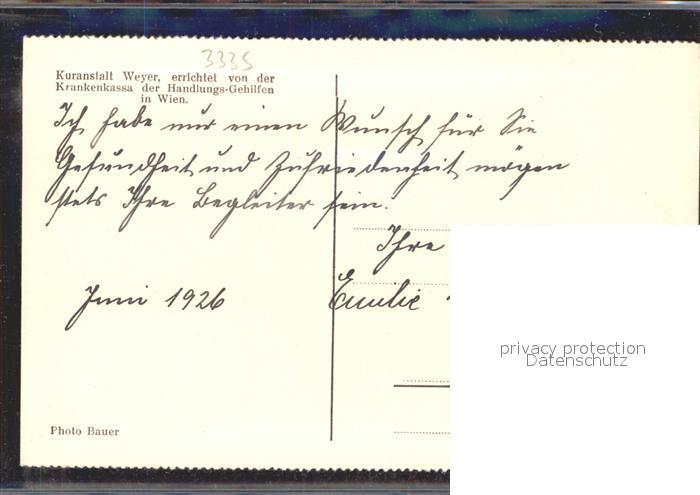 3335
Kuranstalt Weyer, errichtet von der
Krankenkassa der Handlungs-Gehilfen
in Wien.
Ich habe nur einen Wunsch für Sie
Gesundheit und Zufriedenheit mögen
stets Ihre Begleiter sein.
Ihre
Juni 1926
Emilie
privacy protection
Datenschutz
Photo Bauer